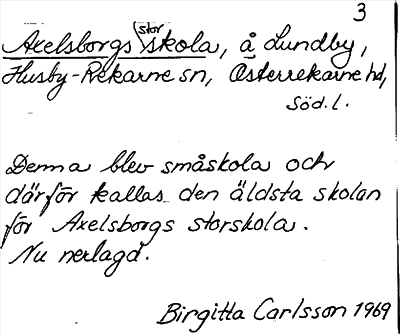 3
Axelsborgs storskola, å Lundby,
Husby-Rekarne sn, Österrekarne hd,
Söd. l.
Denna blev småskola och
därför kallas den äldsta skolan
för Axelsborgs storskola.
Nu nerlagd.
Birgitta Carlsson 1969